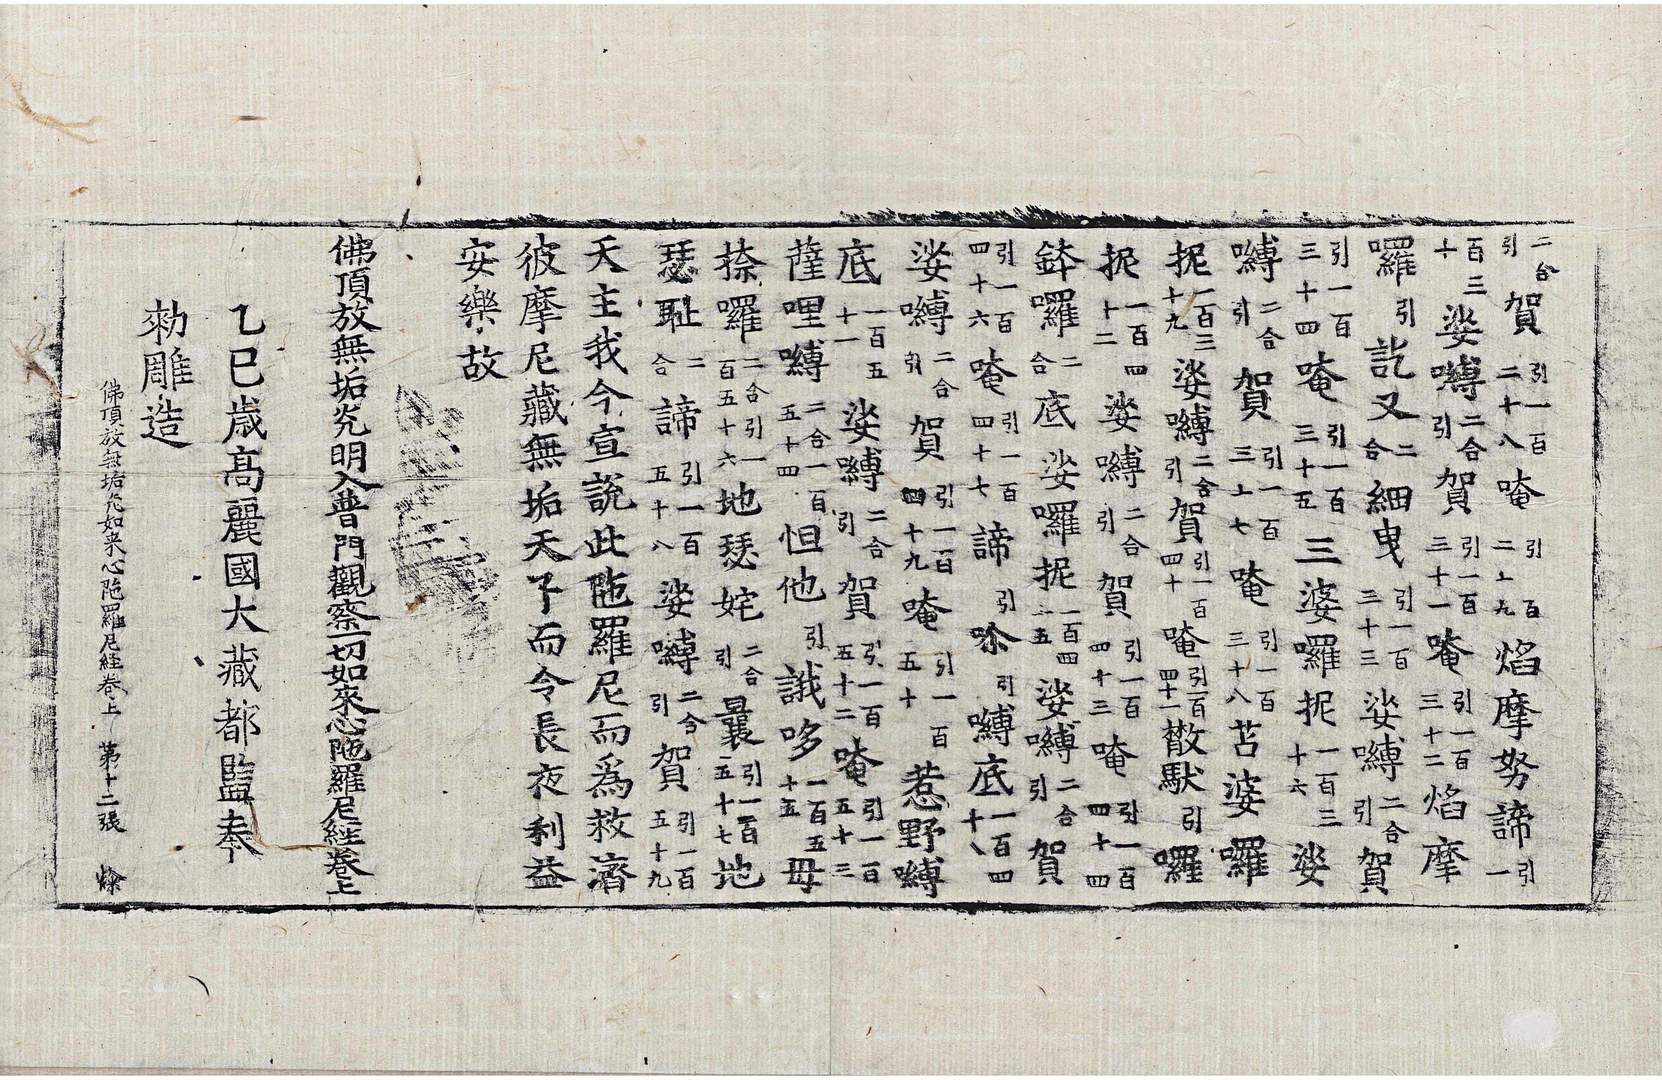 二合引賀引一百二十八唵引一百二十九焰摩努諦引一
百三十娑嚩二合引賀引一百三十一唵引一百三十二焰摩
囉引訖叉二合細曳引一百三十三娑嚩二合引賀
引一百三十四唵引一百三十五三婆囉抳一百三十六娑
嚩二合引賀引一百三十七唵引一百三十八苫婆囉
抳一百三十九娑嚩二合引賀引一百四十唵引一百四十一散馱引囉
抳一百四十二娑嚩二合引賀引一百四十三唵引一百四十四
鉢囉二合底娑囉抳一百四十五娑嚩二合引賀
引一百四十六唵引一百四十七諦引唹引嚩底一百四十八
娑嚩二合引賀引一百四十九唵引一百五十惹野嚩
底一百五十一娑嚩二合引賀引一百五十二唵引一百五十三
薩哩嚩二合一百五十四怛他引誐哆一百五十五母
捺囉二合引一百五十六地瑟姹二合引曩引一百五十七地
瑟恥二合諦引一百五十八娑嚩二合引賀引一百五十九
天主我今宣說此陁羅尼而爲救濟
彼摩尼藏無垢天下而令長夜利益
安樂故
佛頂放無垢光明入普門觀察一切如來心陁羅尼經卷上
乙巳歲高麗國大藏都監奉
勑雕造
佛頂放無垢光如來心陁羅尼經卷上 第十二張